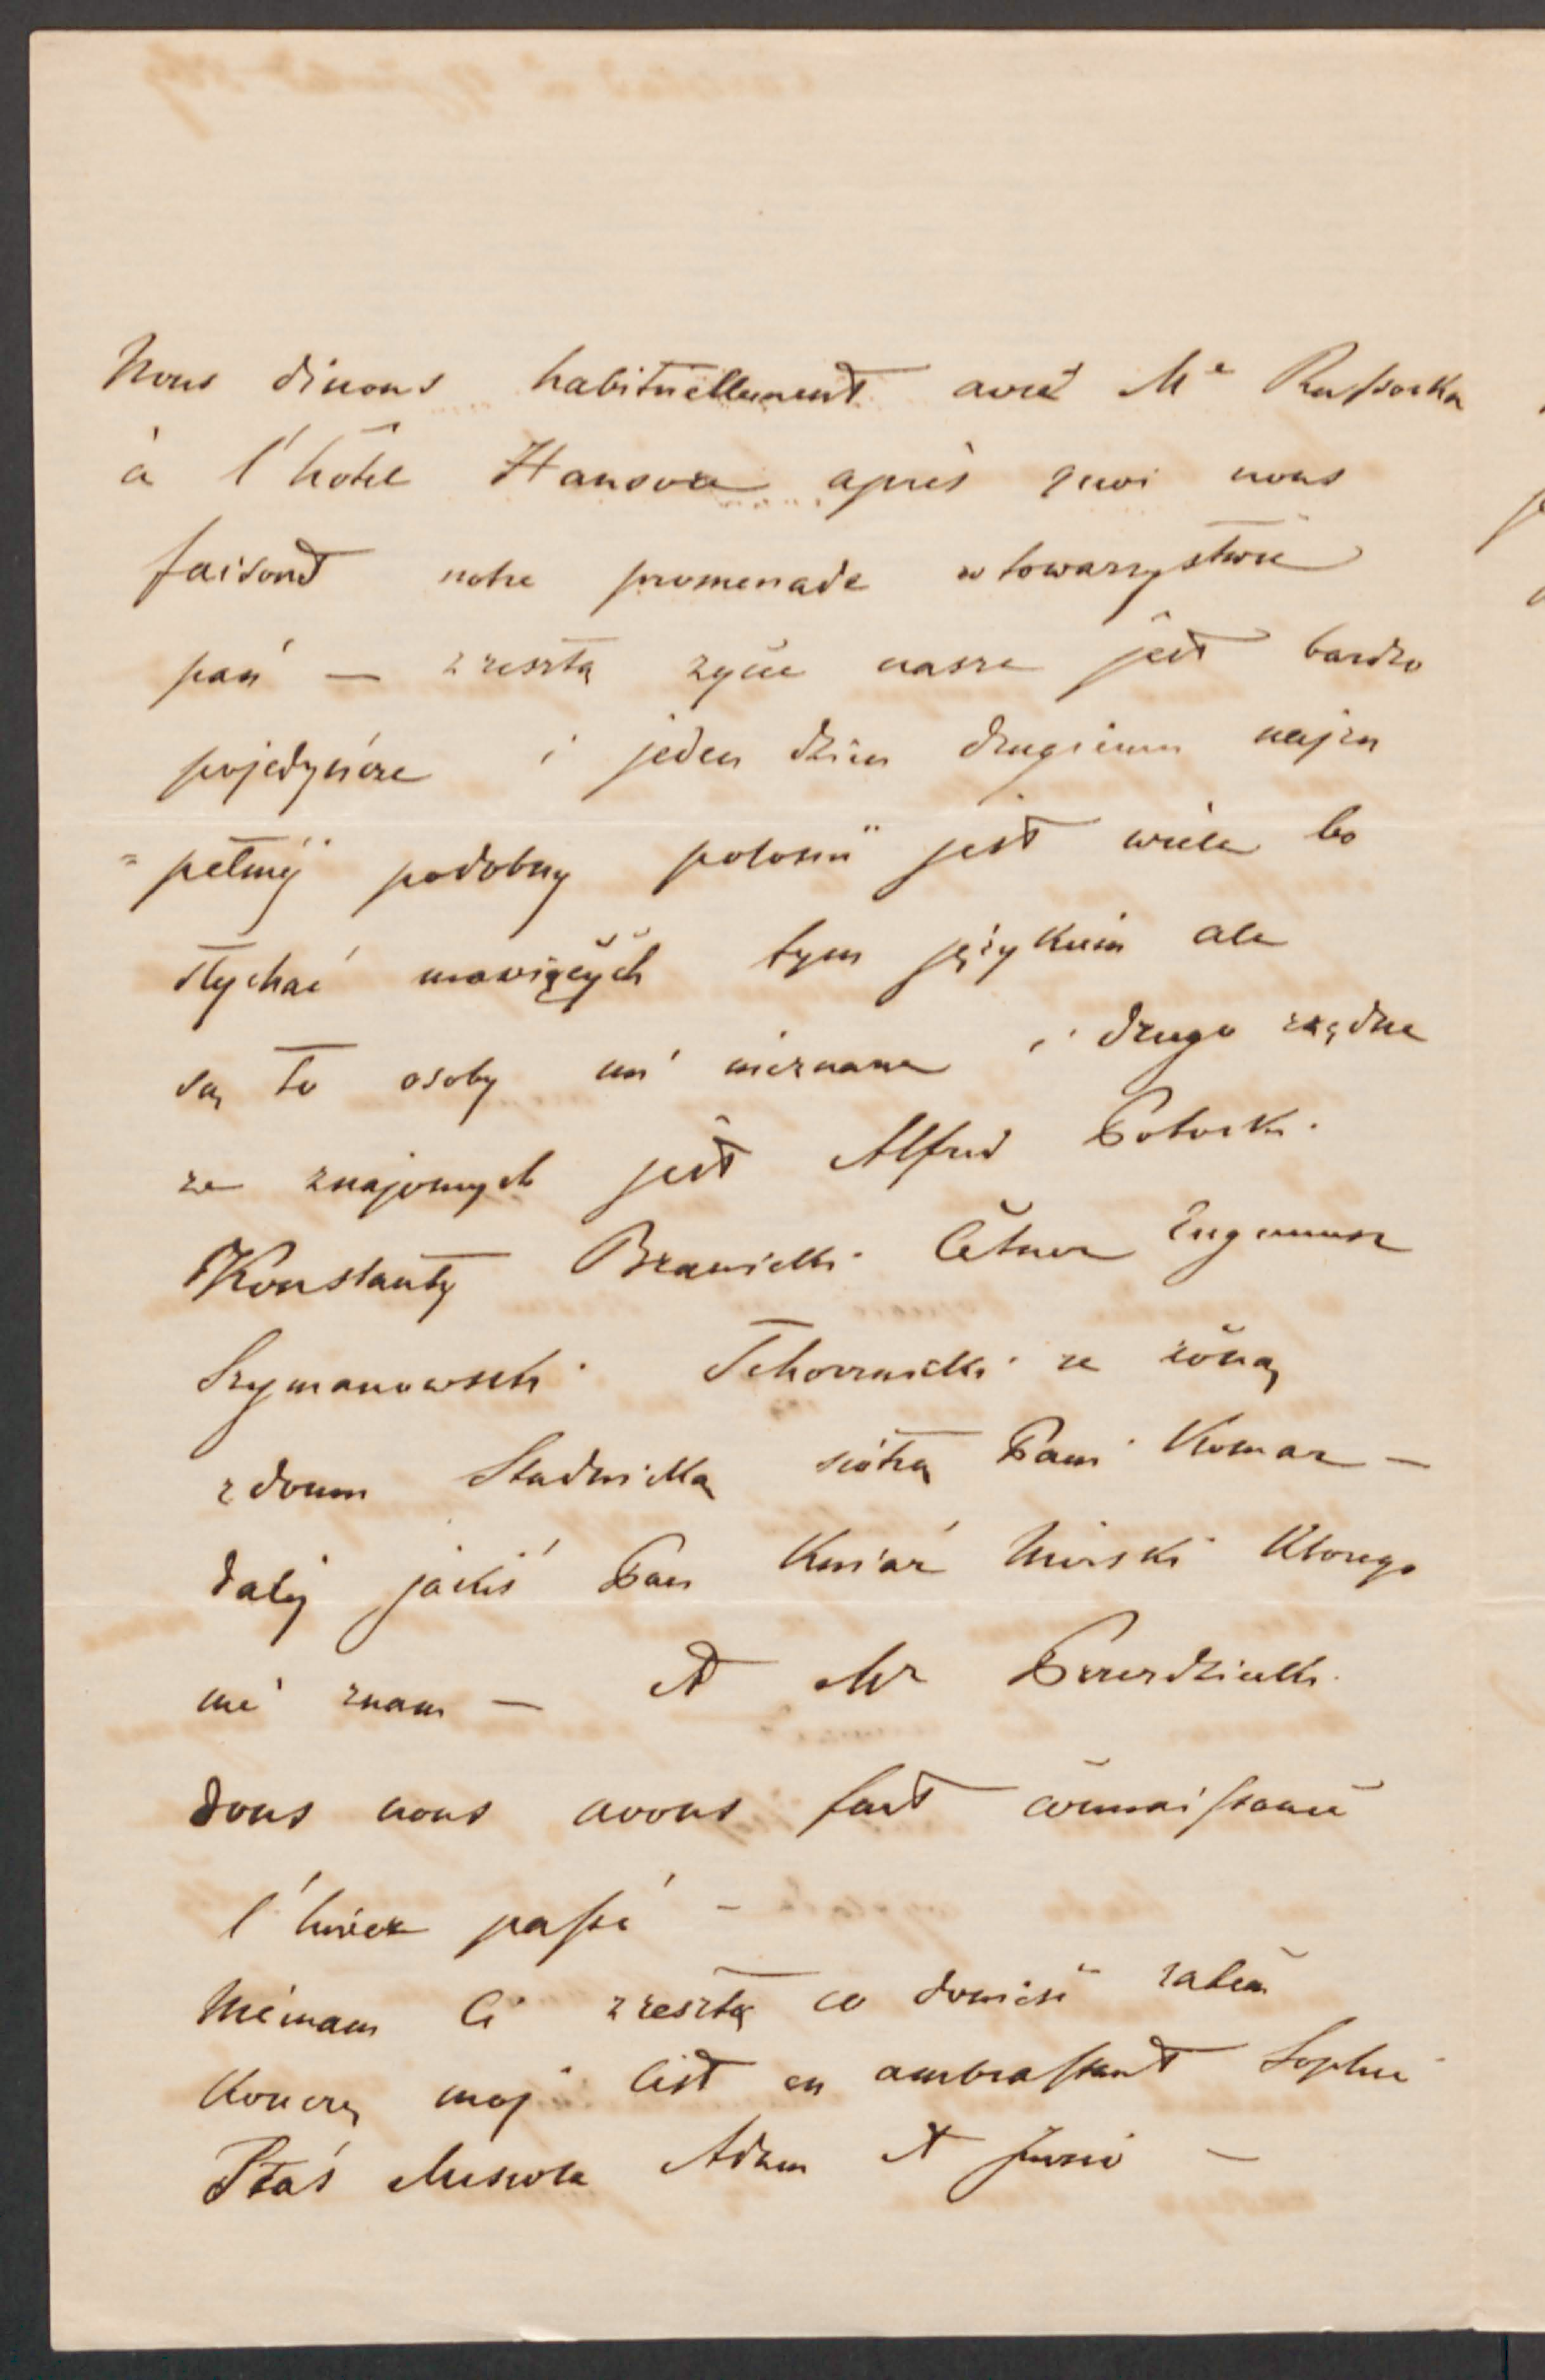 Nous dinons habituellement avec Me Russocka
à l'hôtel Hanovre après quoi nous
faisont notre promenade w towarzystwie
pań — zresztą zycie nasze jest bardzo
pojedyńcze i jeden dzien drugiemu najzu
=pełniej podobny polonii jest wiele bo
słychać mowiących tym językiem ale
są to osoby mi nieznane i drugo rzędne
ze znajomych jest Alfred Potocki
Konstanty Branicki Cetner Eugeniusz
Szymanowski Tchorznicki ze żoną
z domu Stadnicką siostrą Pani Komar —
dalej jakiś Pan Kniaź Mirski Ktorego
nie znam — et Mr Przezdziecki
dons nous avons fait connaissance
l'hiver passé —
Niemam Ci zresztą co donieść zatem
Koncze moj list en ambrassant Sophie
Staś Adam et Juzio —